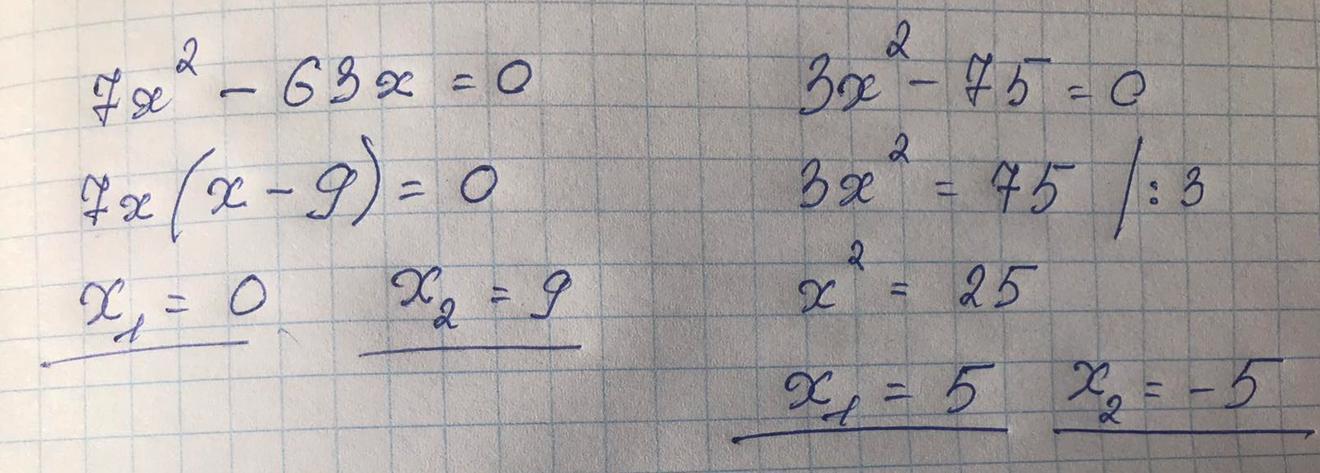 7x² - 63x = 0
7x(x - 9) = 0
x₁ = 0 x₂ = 9
3x² - 75 = 0
3x² = 75 | : 3
x² = 25
x₁ = 5 x₂ = -5